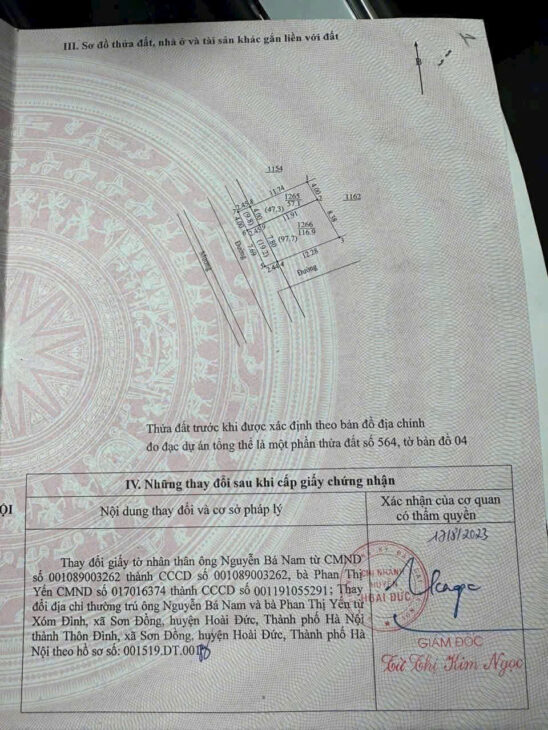 III. Sơ đồ thửa đất, nhà ở và tài sản khác gắn liền với đất
B
1154
1162
11.74
4.00
2.45
1265
57.1
(47.3)
(9.8)
4.00
4.00
11.91
8.38
1266
116.9
(97.7)
(19.2)
7.80
7.69
12.28
2.44
Mương
Đường
Đường
Thửa đất trước khi được xác định theo bản đồ địa chính
đo đạc dự án tổng thể là một phần thửa đất số 564, tờ bản đồ 04
IV. Những thay đổi sau khi cấp giấy chứng nhận
ỘI
Nội dung thay đổi và cơ sở pháp lý
Xác nhận của cơ quan
có thẩm quyền
17/8/2023
Thay đổi giấy tờ nhân thân ông Nguyễn Bá Nam từ CMND
số 001089003262 thành CCCD số 001089003262, bà Phan Thị
Yến CMND số 017016374 thành CCCD số 001191055291; Thay
đổi địa chỉ thường trú ông Nguyễn Bá Nam và bà Phan Thị Yến từ
Xóm Đình, xã Sơn Đồng, huyện Hoài Đức, Thành phố Hà Nội
thành Thôn Đình, xã Sơn Đồng, huyện Hoài Đức, Thành phố Hà
Nội theo hồ sơ số: 001519.DT.001
CHI NHÁNH
HUYỆN
HOÀI ĐỨC
GIÁM ĐỐC
Từ Thị Kim Ngọc